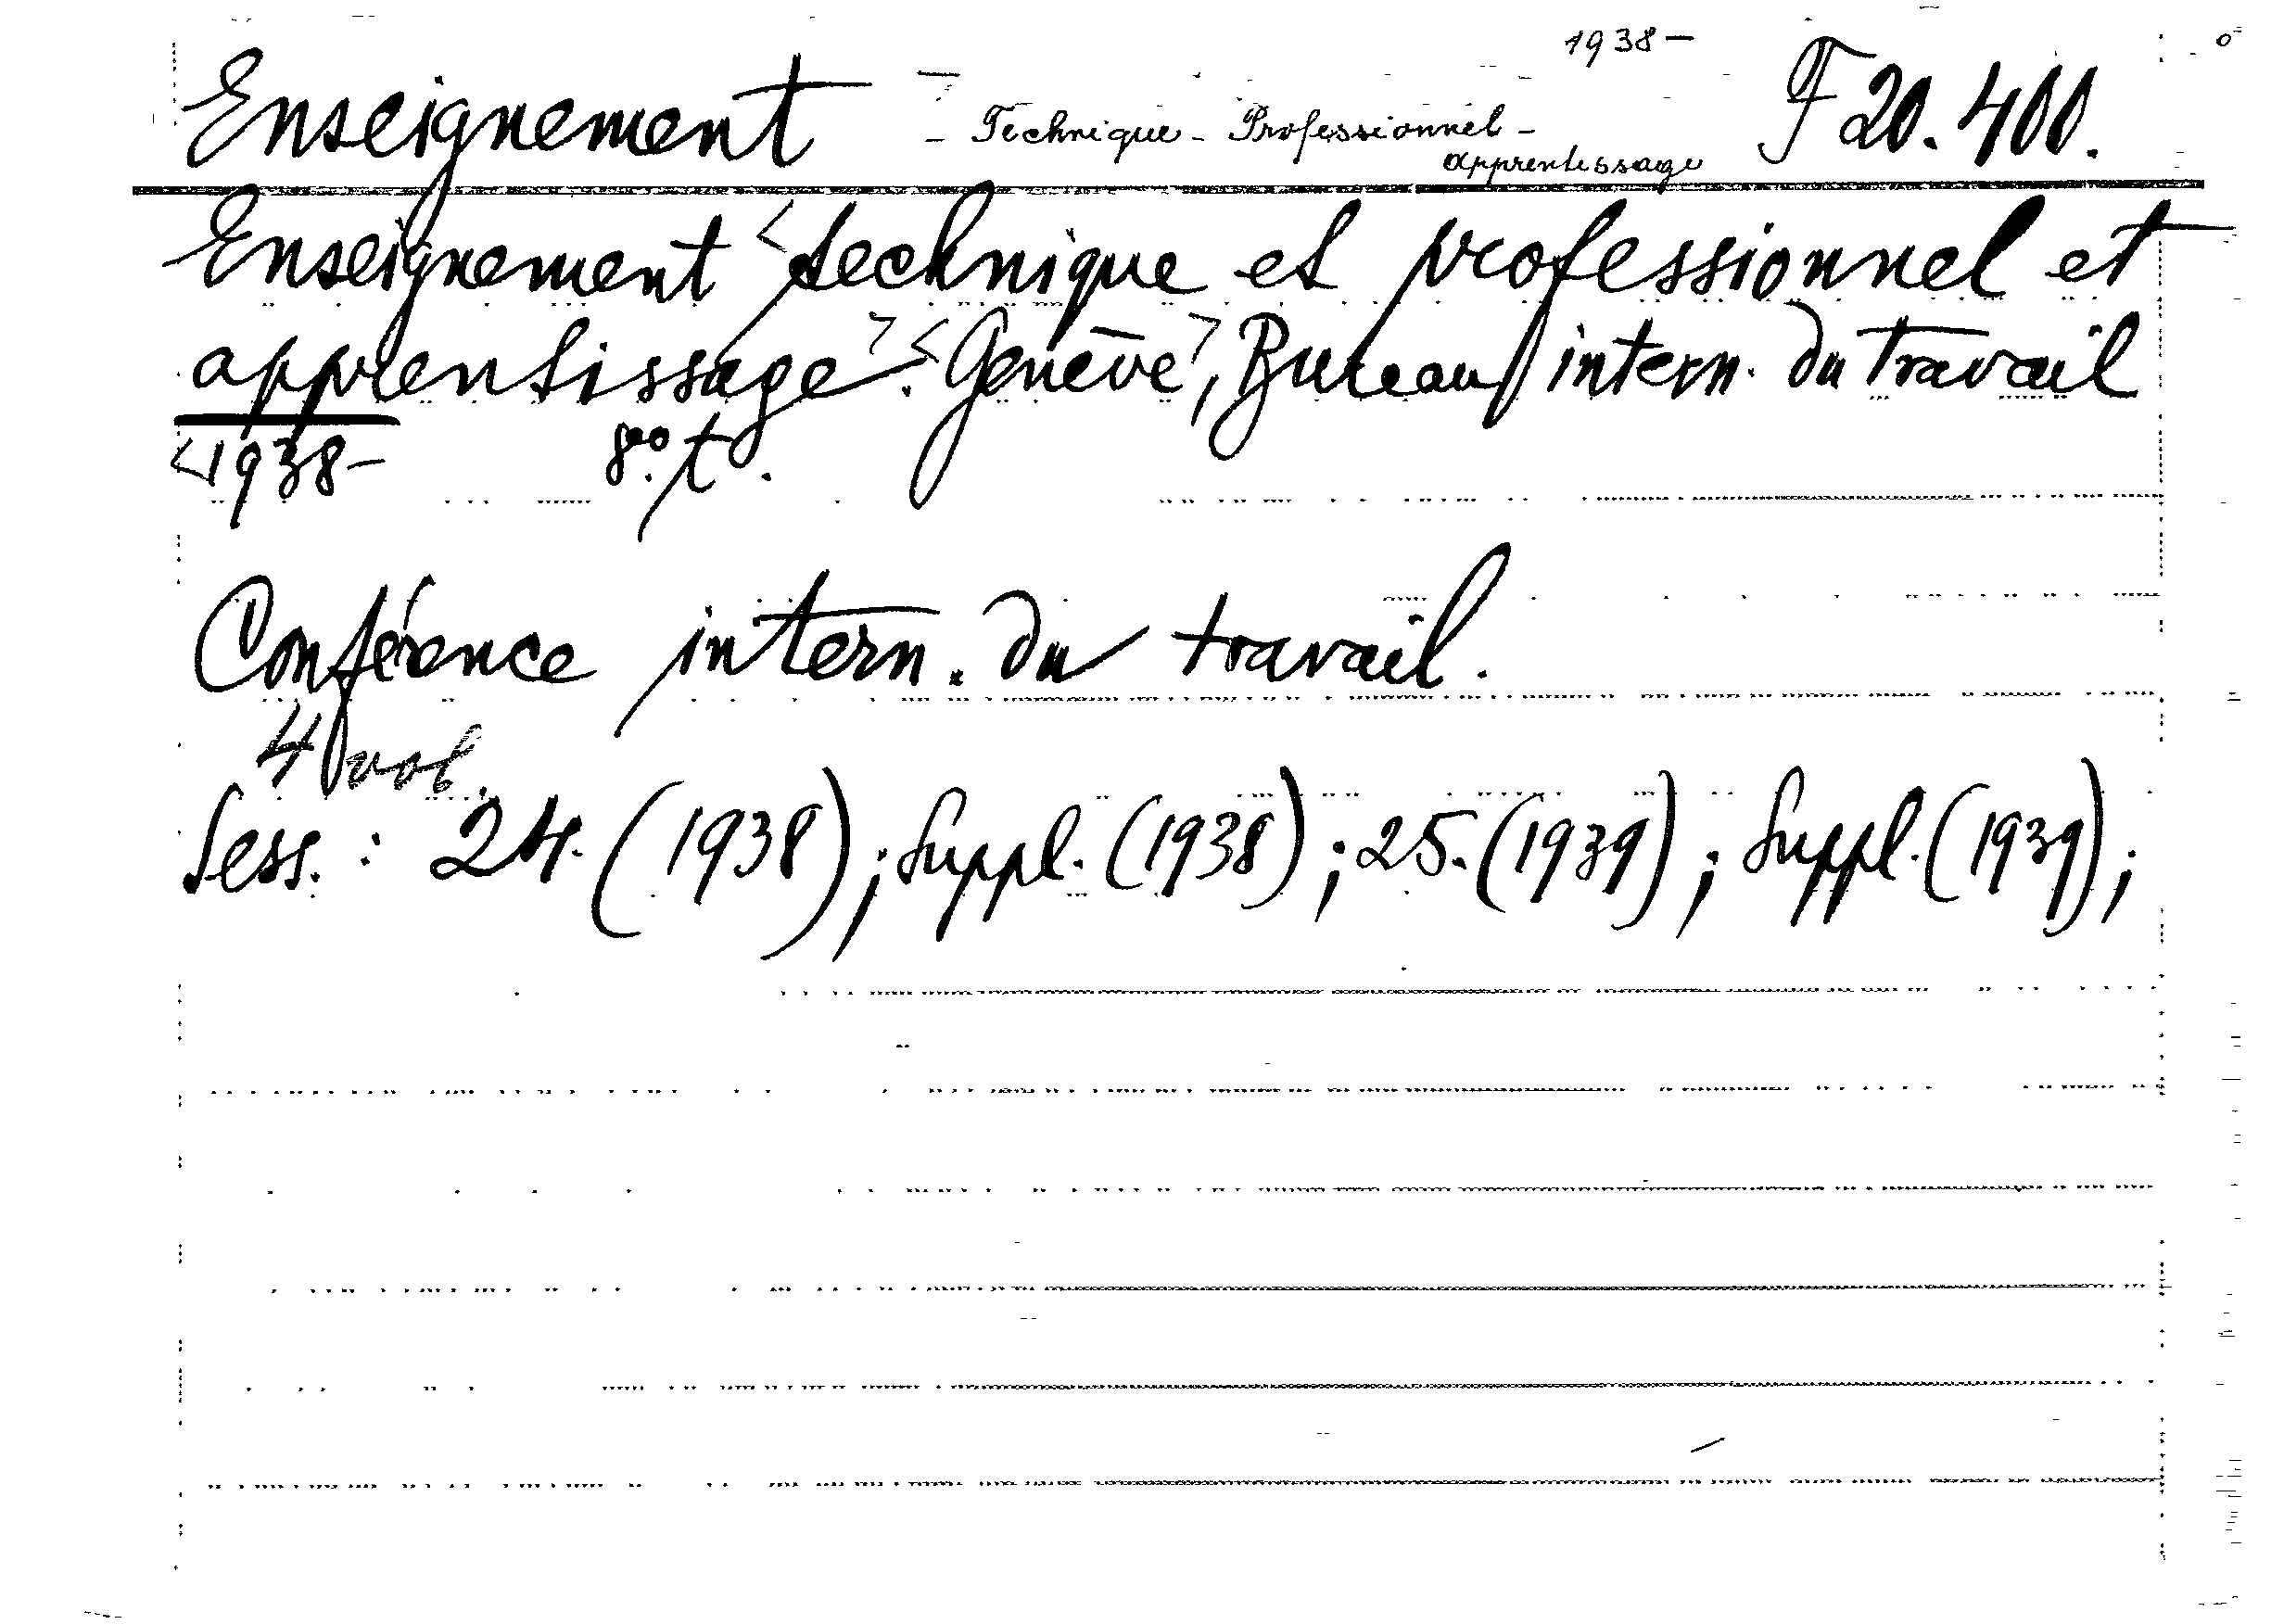 1938-
Enseignement - Technique - Professionnel - F 20.400.
apprentissage
Enseignement <technique et professionnel et
apprentissage>. <Genève>, Bureau intern. du Travail
<1938- 8°. t°.
Conférence intern. du travail.
4 vol.
Sess. : 24. (1938); Suppl. (1938); 25. (1939); Suppl. (1939);